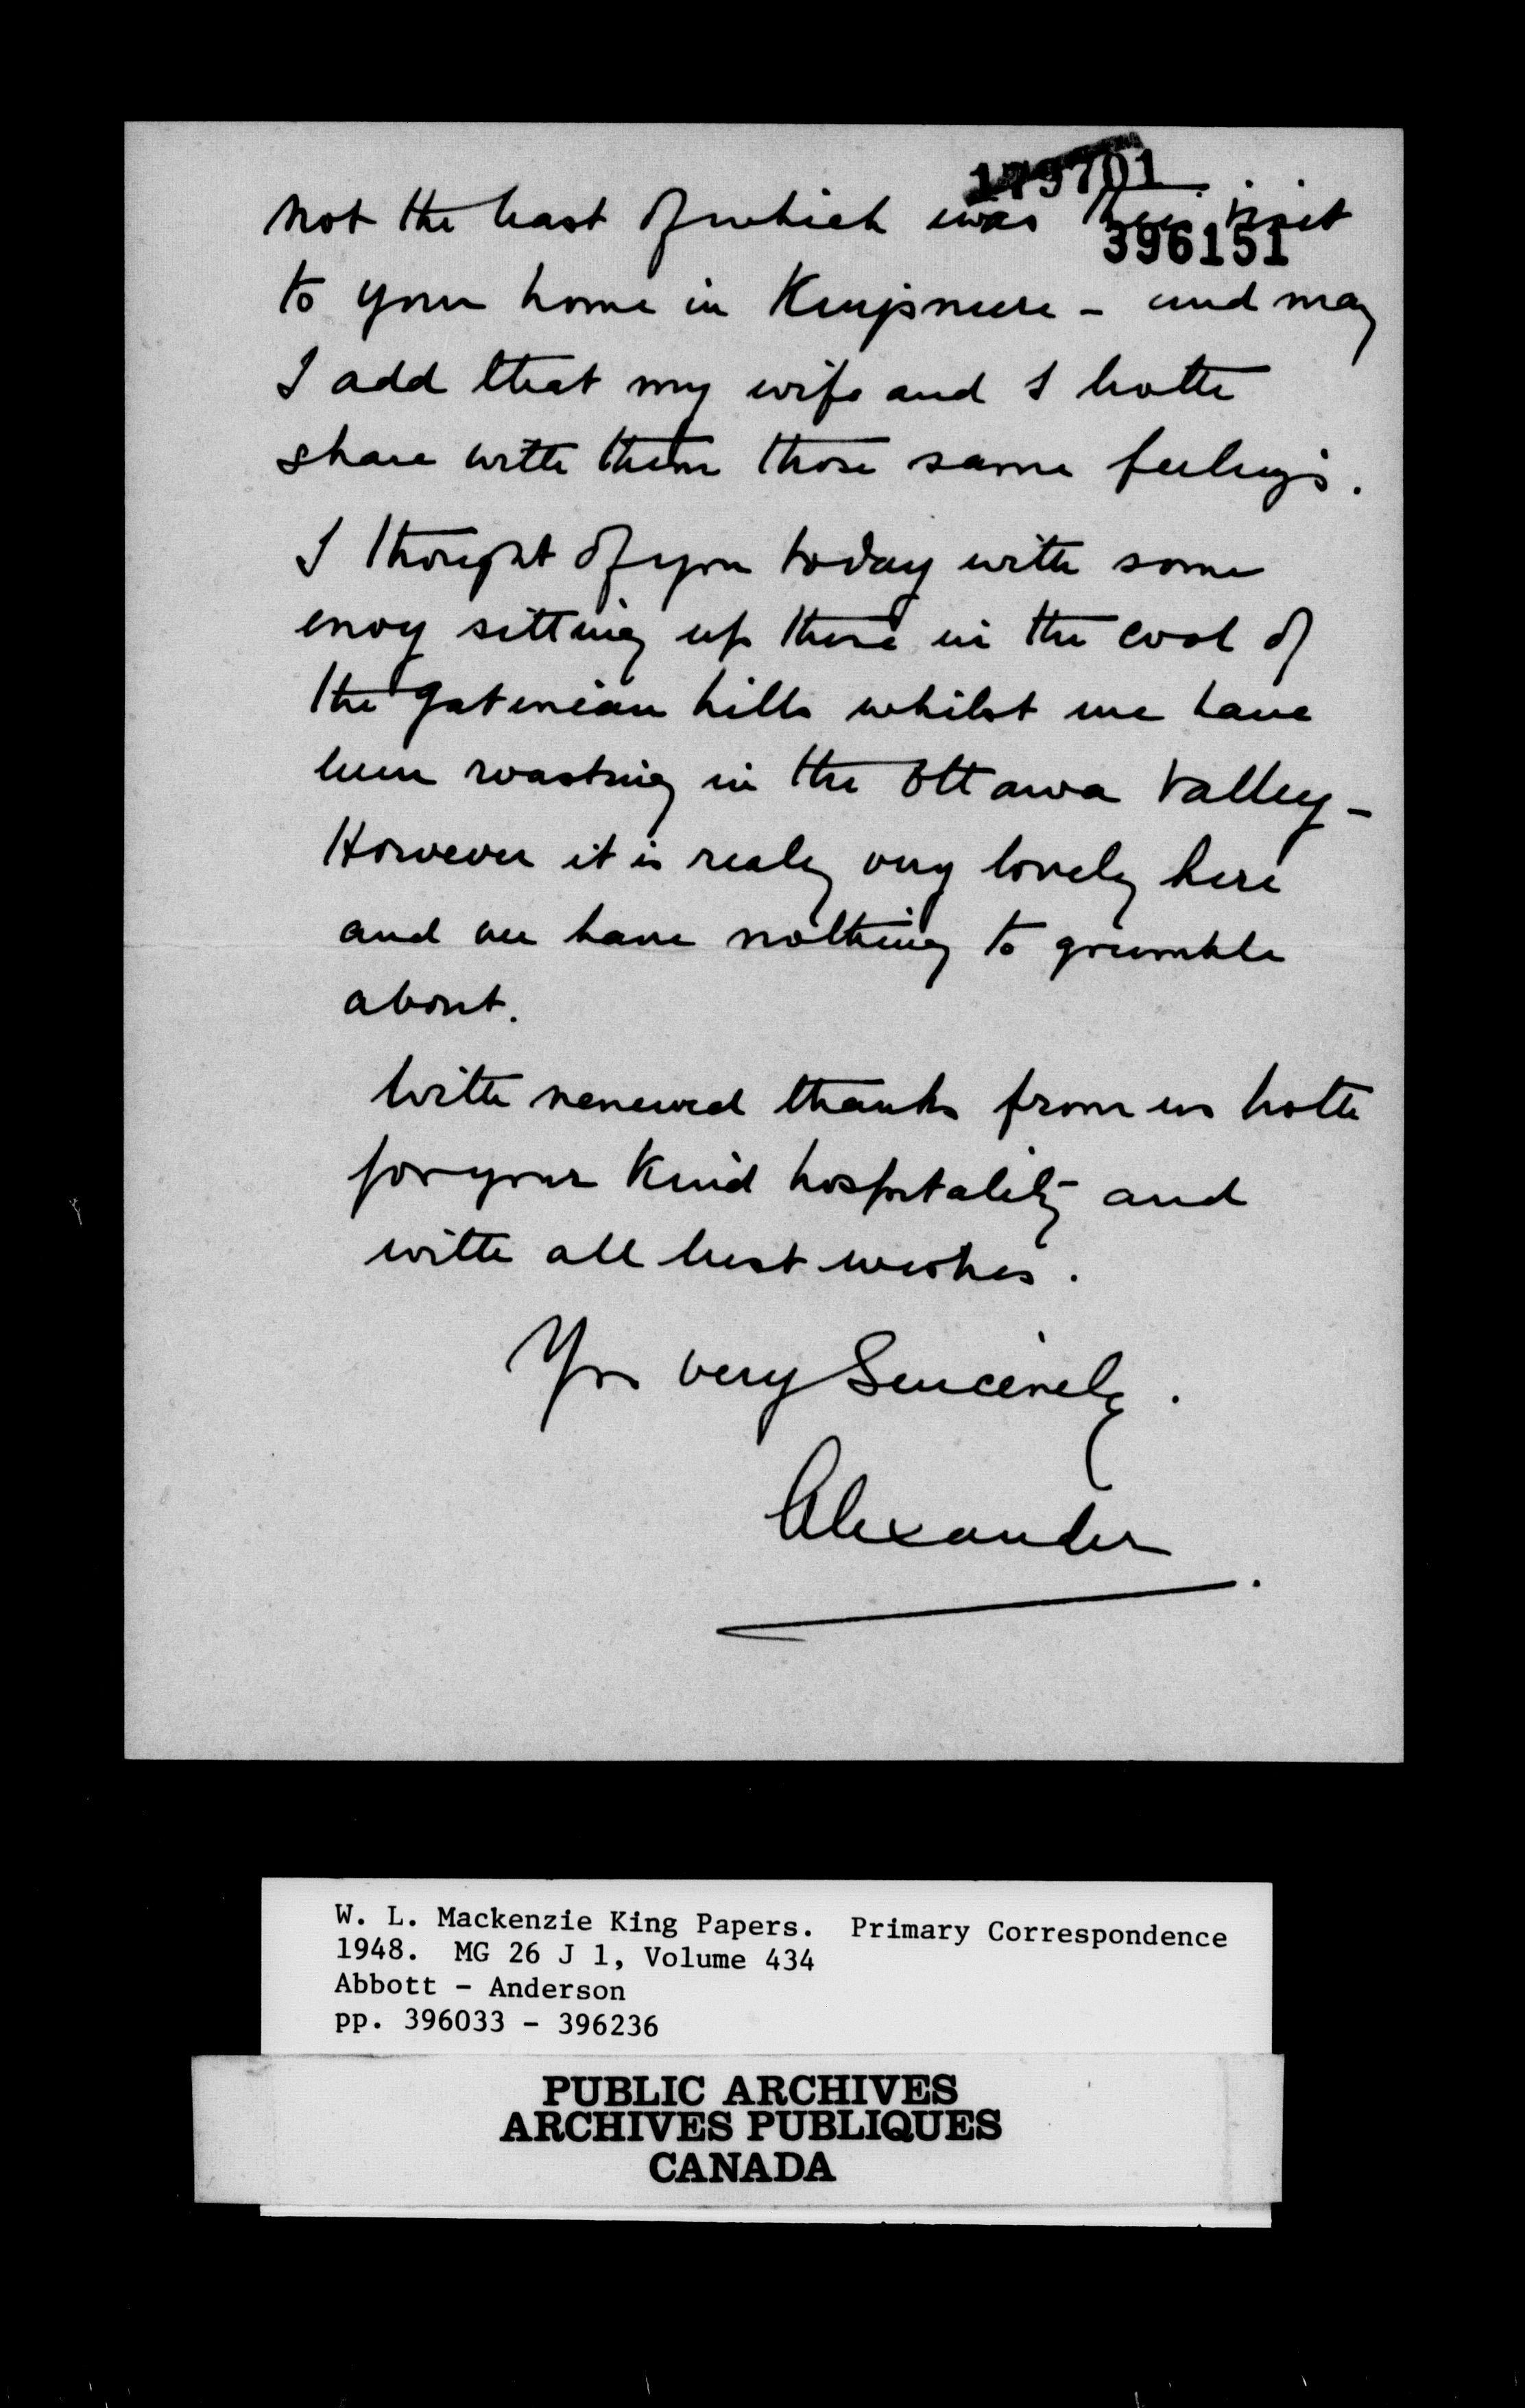 179701
not the least of which was their visit
396151
to your home in Kingsmere - and may
I add that my wife and I both
share with them those same feelings.
I thought of you today with some
envy sitting up there in the cool of
the Gatineau hills whilst we have
been roasting in the Ottawa Valley -
However it is realy very lovely here
and we have nothing to grumble
about.
With renewed thanks from us both
for your kind hospitality and
with all best wishes.
Yrs very Sincerely.
Alexander
W. L. Mackenzie King Papers. Primary Correspondence
1948. MG 26 J 1, Volume 434
Abbott - Anderson
pp. 396033 - 396236
PUBLIC ARCHIVES
ARCHIVES PUBLIQUES
CANADA